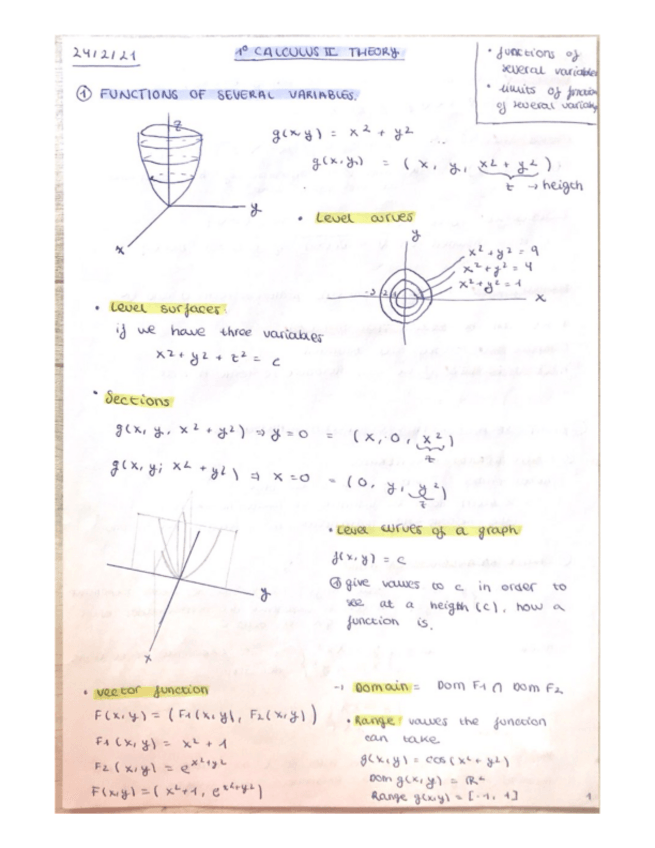 24/2/21
1º CALCULUS II THEORY
• functions of
several variables
• limits of function
of several variable
① FUNCTIONS OF SEVERAL VARIABLES.
z
y
x
g(x,y) = x² + y²
g(x,y) = (x, y, x² + y²)
z → heigth
• Level curves
y
x² + y² = 9
x² + y² = 4
x² + y² = 1
-3 -2 -1
x
• Level surfaces
if we have three variables
x² + y² + z² = c
• Sections
g(x, y, x² + y²) ⇒ y=0 = (x, 0, x²)
z
g(x, y, x² + y²) ⇒ x=0 = (0, y, y²)
z
y
x
• Level curves of a graph
f(x,y) = c
give values to c in order to
see at a heigth (c), how a
function is.
• vector function
F(x,y) = (F1(x,y), F2(x,y))
F1(x,y) = x² + 1
F2(x,y) = e^x²+y²
F(x,y) = (x²+1, e^x²+y²)
→ Domain = Dom F1 ∩ Dom F2
• Range: values the function
can take
g(x,y) = cos(x² + y²)
Dom g(x,y) = ℝ²
Range g(x,y) = [-1, 1]
1